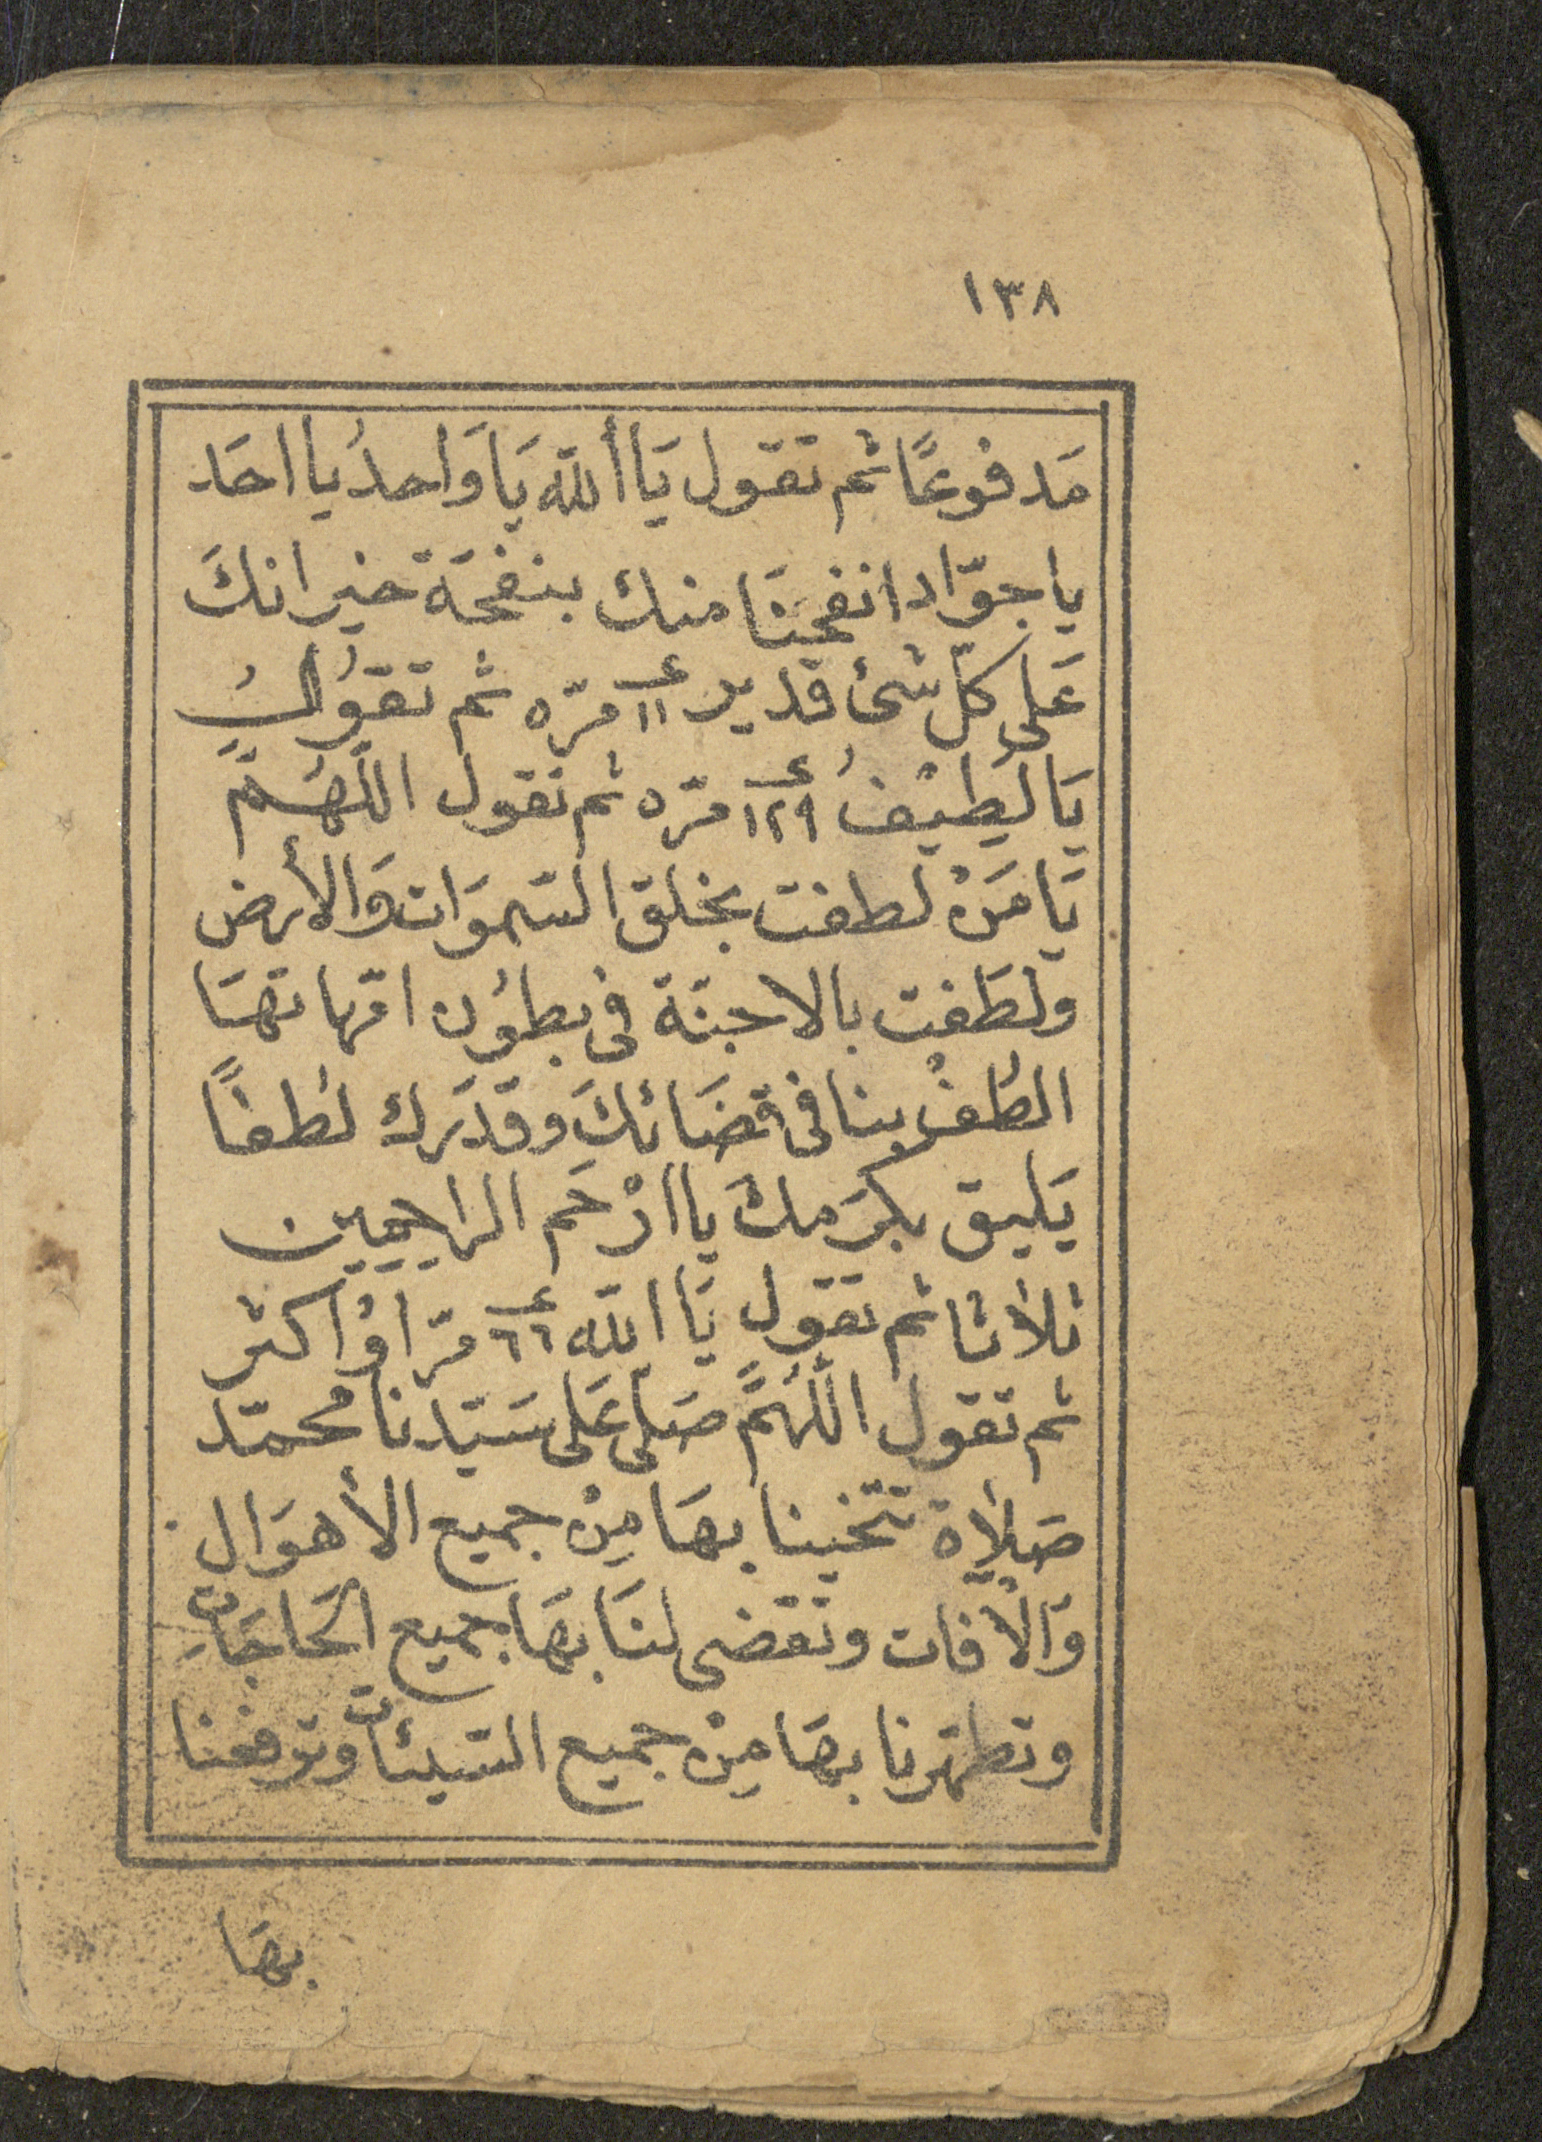 ١٣٨
مَدفُوعًا ثم تقول يَا أللّه يَا وَاحدُ يا احَد
يا جوّاد انفحنَا منك بنفحَة خير انكَ
عَلى كلّ شئ قدير ١١ مرّه ثم تقوُلُ
يَا لَطِيْفُ ١٢٩ مرّه ثم تقول اللّهُمَّ
يَا مَنْ لطفت بخلق السّموَات وَالأرض
ولطَفت بالاجنّة فى بطوُن امّهاتهَا
الطُفْ بنا فى قضَائكَ وقدَرك لطفًا
يَليق بكرَمكَ يا ارْحَم الراحِمِين
ثلاثا ثم تقول يَا اللّه ٦٦ مرّ اوْ اكثر
ثم تقول اللّهُمَّ صَلّى عَلى سَيّدنا محمّد
صَلاة تنّجينا بهَا مِنْ جميع الأهوَال
وَالآفات وتقضى لنَا بهَا جميع الحَاجَاتِ
وتطهّرنا بهَا مِنْ جميع السّيئات وترفعنا
بهَا